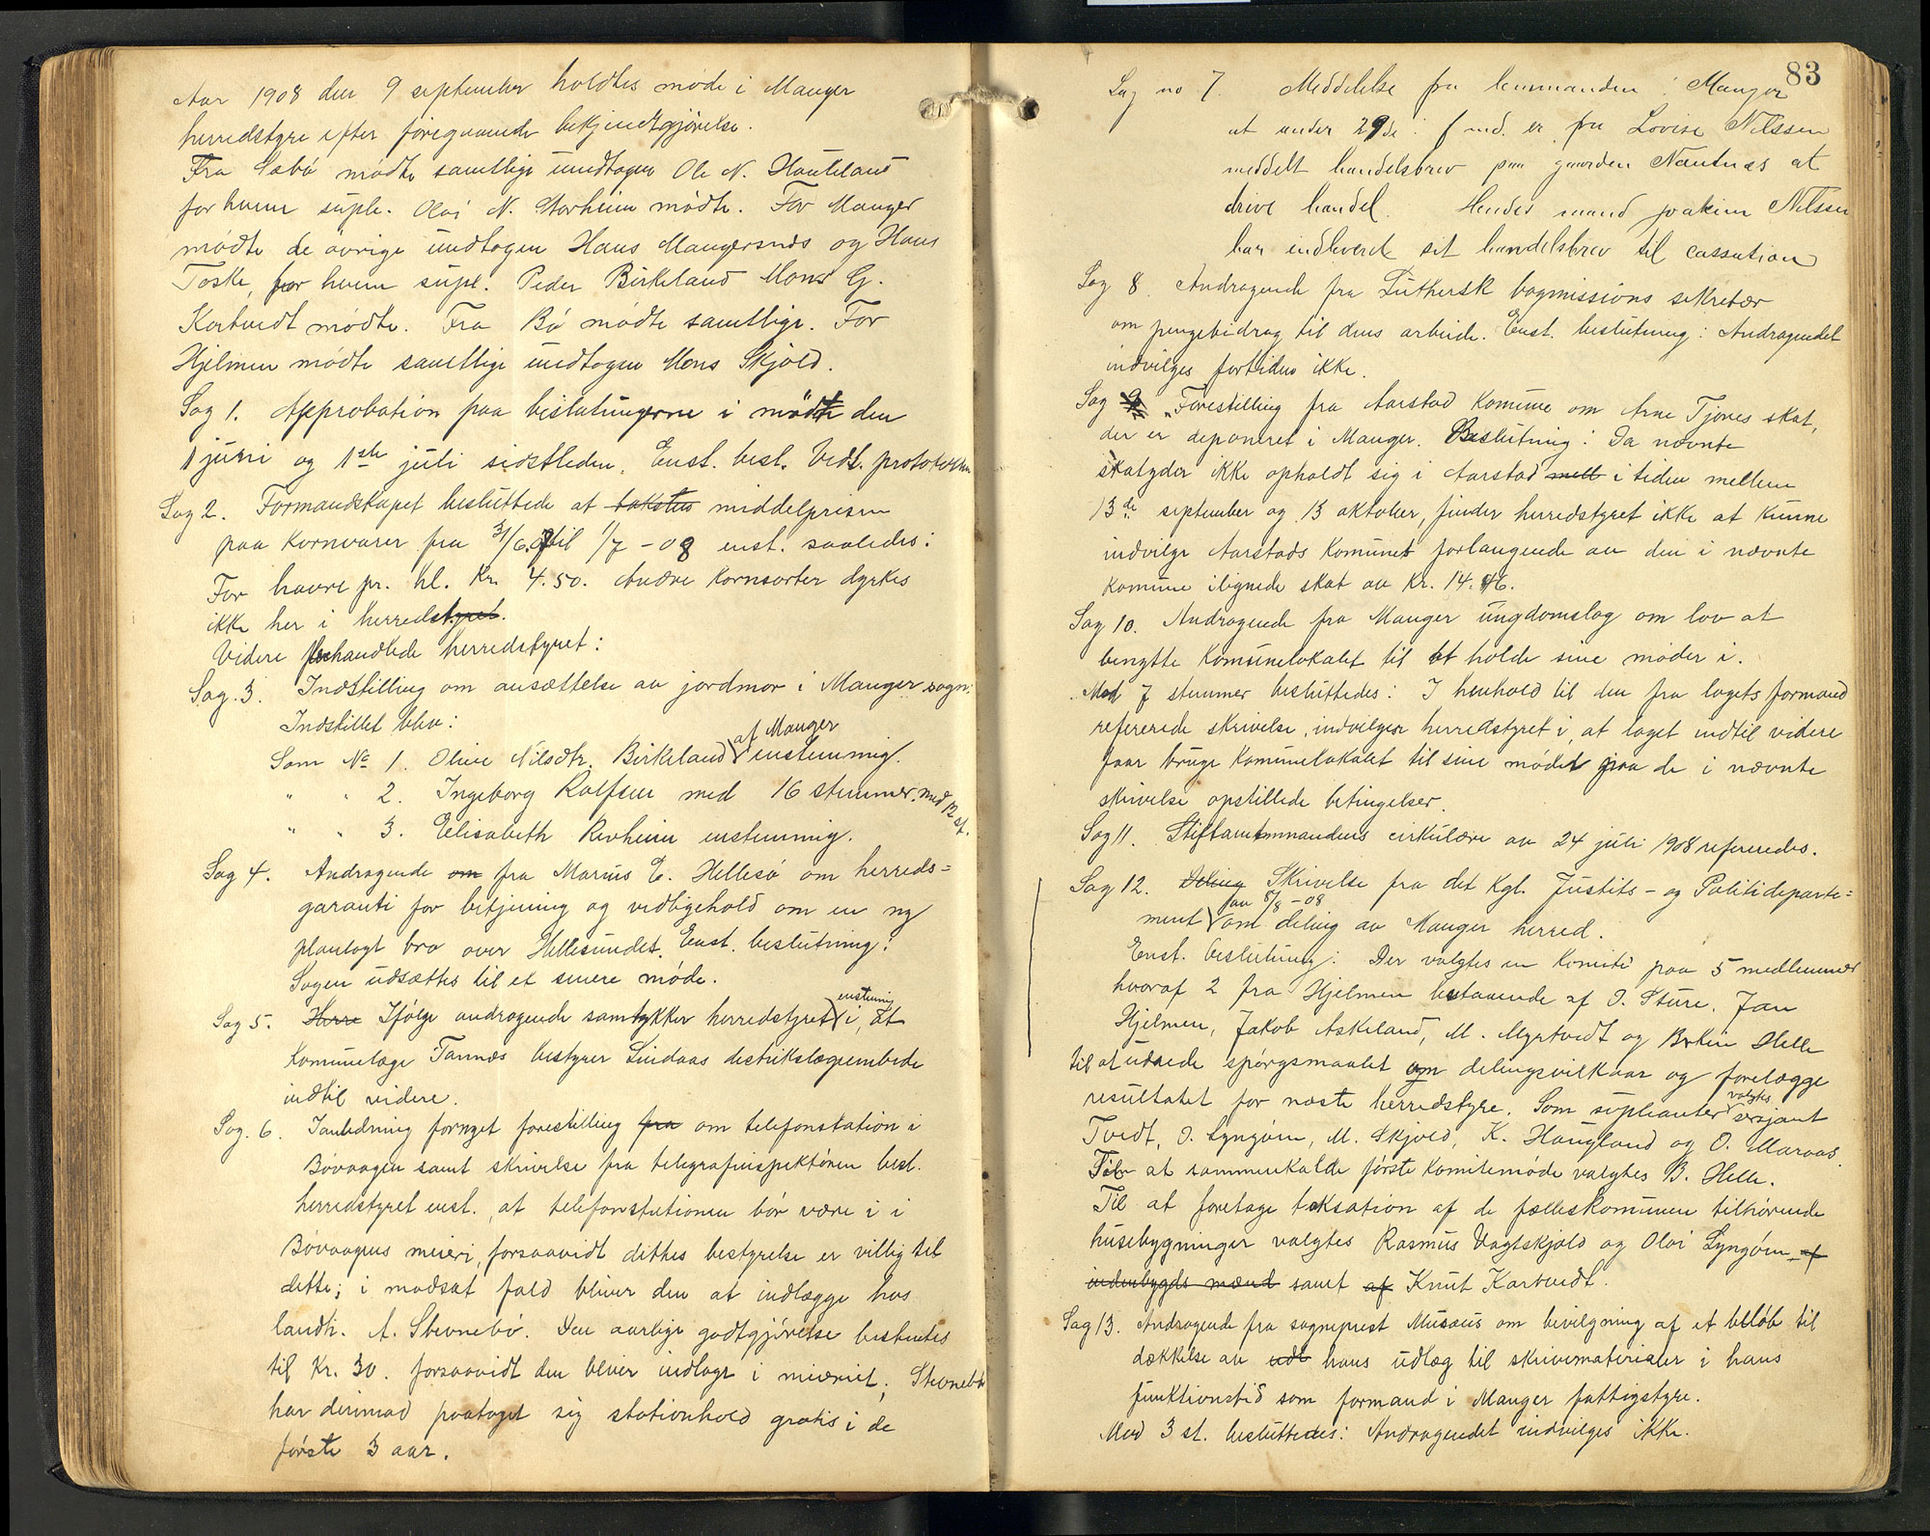 Aar 1908 den 9 september holdtes møde i Manger
herredstyre efter foregaaende bekjendtgjørelse.
Fra Sæbø mødte samtlige undtagen Ole N. Hauteland
for hvem supl. Olai N. Storheim mødte. For Manger
mødte de øvrige undtagen Hans Mangersnes og Hans
Toske, for hvem supl. Peder Birkeland Mons G.
Kartvedt mødte. Fra Bø mødte samtlige. For
Hjelmen mødte samtlige undtagen Mons Skjold.
Sag 1. Approbation paa beslutningerne i mødte den
1 juni og 1ste juli sidstleden. Enst. besl. Vedt. protokollen
Sag 2. Formandskapet besluttede at taksten middelprisen
paa kornvarer fra 31/6 07 til 1/7 - 08 enst. saaledes:
For havre pr. hl. Kr. 4.50. Andre kornsorter dyrkes
ikke her i herredstyret.
Videre forhandlede herredstyret:
Sag. 3. Indstilling om ansættelse av jordmor i Manger sogn.
Indstillet blev:
af Manger
Som No 1. Oline Nilsdtr. Birkeland enstemmig.
" " 2. Ingeborg Rolfsen med 16 stemmer. med 12 st.
" " 3. Elisabeth Revheim enstemmig.
Sag 4. Andragende om fra Marius E. Hellesø om herreds=
garanti for betjening og vedligehold om en ny
planlagt bro over Hellesundet. Enst. beslutning:
Sagen udsættes til et senere møde.
enstemig
Sag 5. Herre Ifølge andragende samtykker herredstyret i, at
Kommunelæge Tannæs bestyrer Lindaas destrikslægeembede
indtil videre.
Sag. 6. I anledning fornyet forestilling fra om telefonstation i
Bøvaagen samt skrivelse fra telegrafinspektøren besl.
herredstyret enst., at telefonstationen bør være i i
Bøvaagens meieri, forsaavidt dettes bestyrelse er villig til
dette; i modsat fald bliver den at indlægge hos
landh. A. Stevnebø. Den aarlige godtgjørelse bestemtes
til Kr. 30. forsaavidt den bliver indlagt i meieriet; Stevnebø
har derimod paataget sig stationhold gratis i de
første 3 aar.
83
Sag no 7. Meddelelse fra lensmanden i Manger
at under 29de f md. er fru Lovise Nilssen
meddelt handelsbrev paa gaarden Nautnes at
drive handel. Hendes mand Joakim Nilssen
har indleveret sit handelsbrev til cassation
Sag 8. Andragende fra Luthersk bogmissions sekretær
om pengebidrag til dens arbeide. Enst. beslutning: Andragendet
indvilges fortiden ikke.
Sag 9. Forestilling fra Aarstad Komune om Arne Tjores skat,
der er deponeret i Manger. Beslutning: Da nævnte
skatyder ikke opholdt sig i Aarstad mell i tiden mellem
13de september og 13 oktober, finder herredstyret ikke at kunne
indvilge Aarstads Komunes forlangende av den i nævnte
komune ilignede skat av Kr. 14.46.
Sag 10. Andragende fra Manger ungdomslag om lov at
benytte Komunelokalet til at holde sine møder i.
Med 7 stemmer besluttedes: I henhold til den fra lagets formand
refererede skrivelse, indvilger herredstyret i, at laget indtil videre
faar bruge Komunelokalet til sine møder paa de i nævnte
skrivelse opstillede betingelser.
Sag 11. Stiftamtmandens cirkulære av 24 juli 1908 refereredes.
Sag 12. Deling Skrivelse fra det Kgl. Justits- og Politideparte=
fra 8/8 - 08
ment om deling av Manger herred.
Enst. beslutning: Der valgtes en Komite paa 5 medlemmer
hvoraf 2 fra Hjelmen bestaaende af O. Sture, Jan
Hjelmen, Jakob Askeland, M. Myrtvedt og Berkin Helle
til at udrede spørgsmaalet om delingsvilkaar og forelægge
resultatet for næste herredstyre. Som supleanter valgtes sersjant
Tvedt, O. Lyngøen, M. Skjold, K. Haugland og O. Maraas.
Til at sammenkalde første Komitemøde valgtes B. Helle.
Til at foretage taksation af de fælleskomunen tilhørende
husebygninger valgtes Rasmus Vagtskjold og Olai Lyngøen af
indenbygds mænd samt af Knut Kartveidt.
Sag 13. Andragende fra sogneprest Musæus om bevilgning af et beløb til
dækkelse av udl hans udlæg til skrivematerialer i hans
funktionstid som formand i Manger fattigstyre.
Med 3 st. besluttedes: Andragendet indvilges ikke.